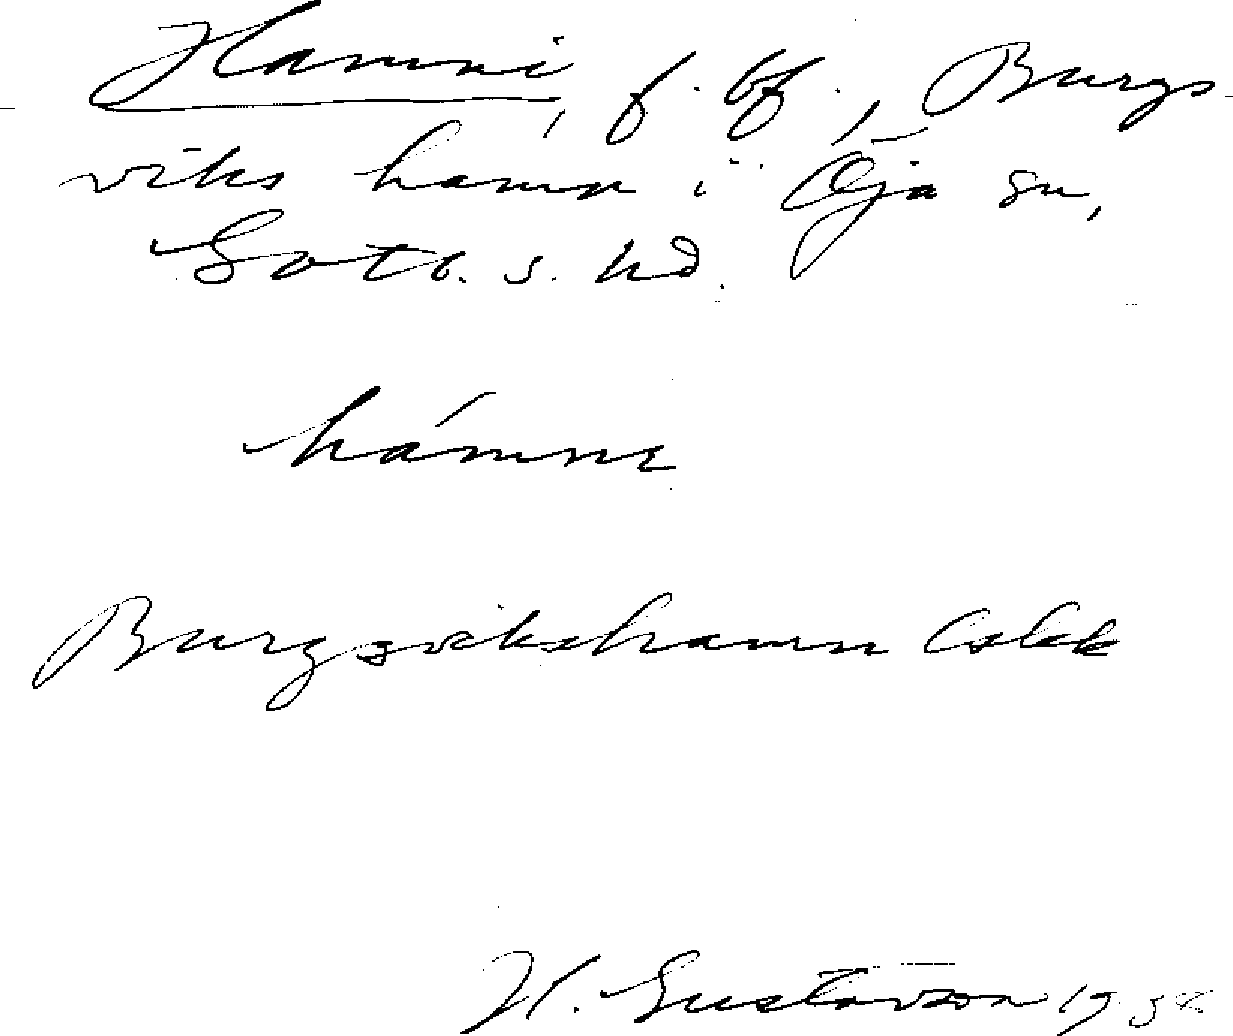 Hamni, f. bf., Burgs-
viks hamn i Öja sn,
Gotl. s. hd.
hámnι
Burgsvikshamn
H. Gustavson 19